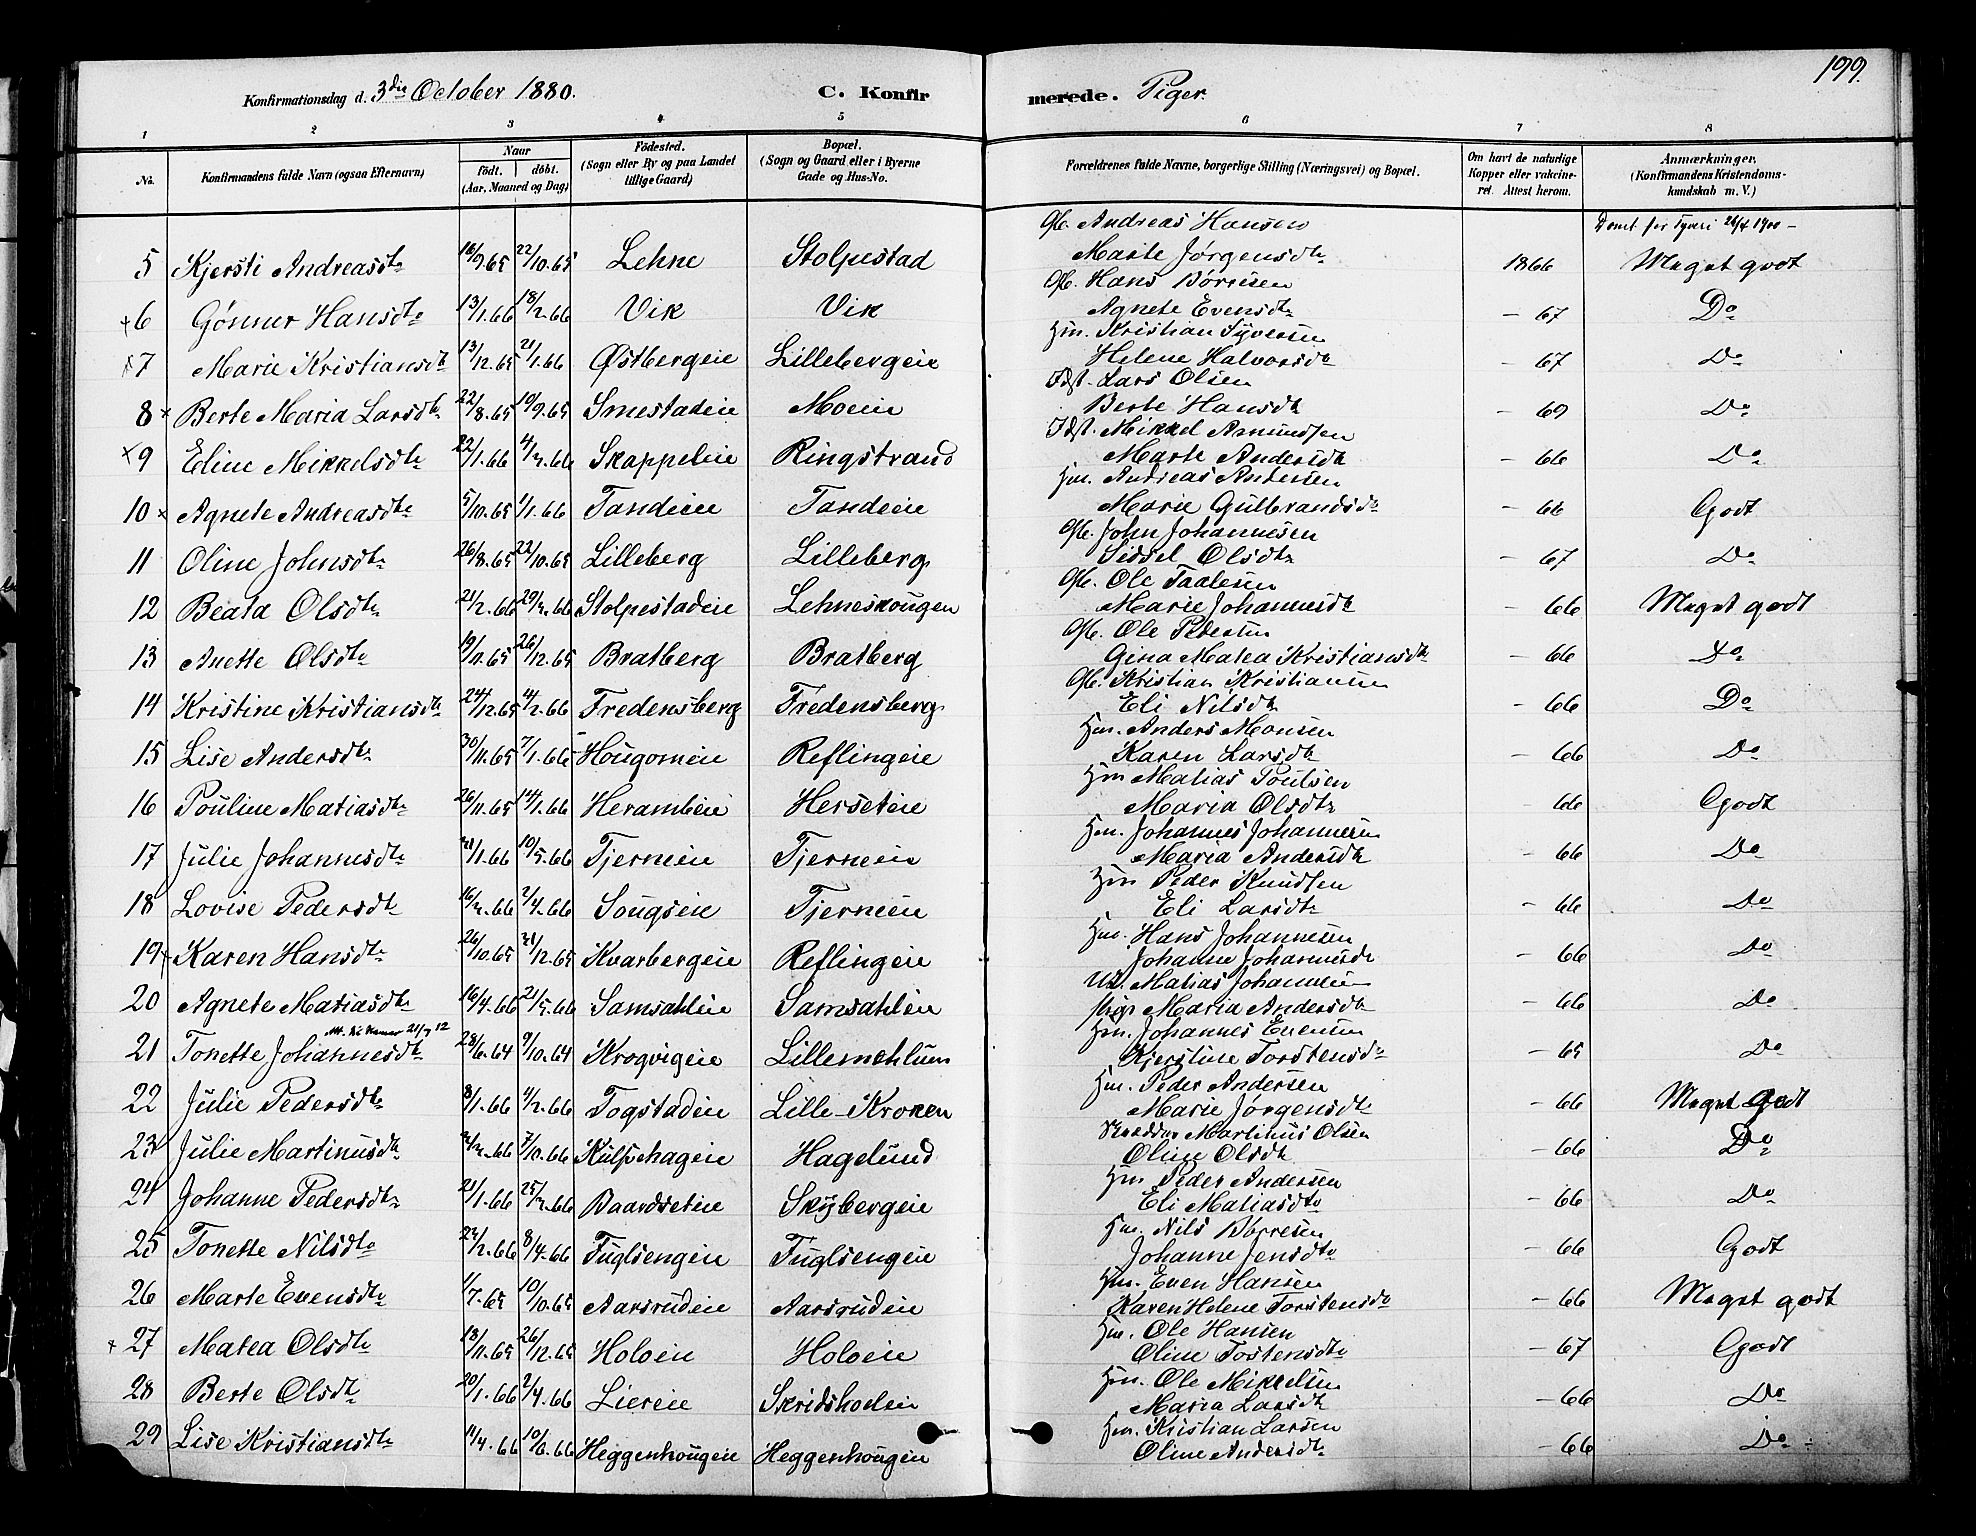 199.
Konfirmationsdag d. 3die October 1880. C. Konfirmerede. Piger.
1 2 3 4 5 6 7 8
No. Konfirmandens fulde Navn (ogsaa Efternavn) Naar født. døbt. (Aar, Maaned og Dag) Födested. (Sogn eller By og paa Landet tillige Gaard) Bopæl. (Sogn og Gaard eller i Byerne Gade og Hus-No. Forældrenes fulde Navne, borgerlige Stilling (Næringsvei) og Bopæl. Om havt de naturlige Kopper eller vakcineret. Attest herom. Anmærkninger. (Konfirmandens Kristendomskundskab m. V.)
Gb. Andreas Hansen
5 Kjersti Andreasdtr 16/9.65 22/10.65 Lehne Stolpestad Marte Jørgensdtr 1866 Meget godt
Gb. Hans Børresen
6 Gønner Hansdtr 13/1.66 18/2.66 Vik Vik Agnete Evensdtr – 67 Do
Hm. Kristian Syversen
7 Marie Kristiansdtr 13/12.65 21/1.66 Østbergeie Lillebergeie Helene Halvorsdtr – 67 Do
Idst. Lars Olsen
8 Berte Maria Larsdtr 22/8.65 10/9.65 Smestadeie Moeie Berte Hansdtr – 69 Do
Idst. Mikkel Asmundsen
9 Eline Mikkelsdtr 22/1.66 4/3.66 Skappeleie Ringstrand Marte Andersdtr – 66 Do
Hm. Andreas Andersen
10 Agnete Andreasdtr 5/10.65 1/1.66 Tandeie Tandeie Marie Gulbrandsdtr – 66 Godt
Gb. John Johannesen
11 Oline Johnsdtr 26/8.65 22/10.65 Lilleberg Lilleberg Sidsel Olsdtr – 67 Do
Gb. Ole Taalesen
12 Beata Olsdtr 21/2.66 29/3.66 Stolpestadeie Lehneskougen Marie Johannesdtr – 66 Meget godt
Gb. Ole Pedersen
13 Anette Olsdtr 19/11.65 26/12.65 Bratberg Bratberg Gina Matea Kristiansdtr – 66 Do
Gb. Kristian Kristiansen
14 Kristine Kristiansdtr 24/12.65 4/2.66 Fredensberg Fredensberg Eli Nilsdtr – 66 Do
Hm. Anders Monsen
15 Lise Andersdtr 30/11.65 7/1.66 Hougomeie Reflingeie Karen Larsdtr – 66 Do
Hm Matias Poulsen
16 Pouline Matiasdtr 26/11.65 14/1.66 Herambeie Herseteie Maria Olsdtr – 66 Godt
Hm. Johannes Johannesen
17 Julie Johannesdtr 31/1.66 10/5.66 Tjerneie Tjerneie Maria Andersdtr – 66 Do
Hm Peder Knudsen
18 Lovise Pedersdtr 16/3.66 2/4.66 Sougseie Tjerneie Eli Larsdtr – 66 Do
Hm. Hans Johannesen
19 Karen Hansdtr 26/10.65 31/12.65 Kvarbergeie Reflingeie Johanne Johannesdtr – 66 Do
Matias Johannesen
20 Agnete Matiasdtr 16/4.66 21/5.66 Samsahleie Samsahleie Pige Maria Andersdtr – 66 Do
Hm. Johannes Evensen
21 Tonette Johannesdtr 28/6.64 9/10.64 Krogvigeie Lillemehlum Kjerstine Torstensdtr – 65 Do
Hm. Peder Andersen
22 Julie Pedersdtr 8/1.66 4/2.66 Togstadeie Lille-Kroken Marie Jørgensdtr – 66 Meget godt
Skrædder Martinus Olsen
23 Julie Martinusdtr 7/10.66 Kulsvehageie Hagelund Oline Olsdtr – 66 Do
Hm Peder Andersen
24 Johanne Pedersdtr 21/1.66 25/3.66 Baardseteie Skybergeie Eli Matiasdtr – 66 Do
Hm. Nils Børresen
25 Tonette Nilsdtr 22/2.66 8/4.66 Fuglsengeie Fuglsengeie Johanne Jensdtr – 66 Godt
Hm. Even Hansen
26 Marte Evensdtr 1/7.65 10/10.65 Aarsrudeie Aarsrudeie Karen Helene Torstensdtr – 66 Meget godt
Hm. Ole Hansen
27 Matea Olsdtr 13/11.65 26/12.65 Holoeie Holoeie Oline Tostensdtr – 67 Godt
Hm. Ole Mikkelsen
28 Berte Olsdtr 20/1.66 2/4.66 Liereie Skridsholeie Maria Larsdtr – 66 Do
Hm. Kristian Larsen
29 Lise Kristiansdtr 14/4.66 10/6.66 Heggenhougeie Heggenhougeie Oline Andersdtr – 66 Do